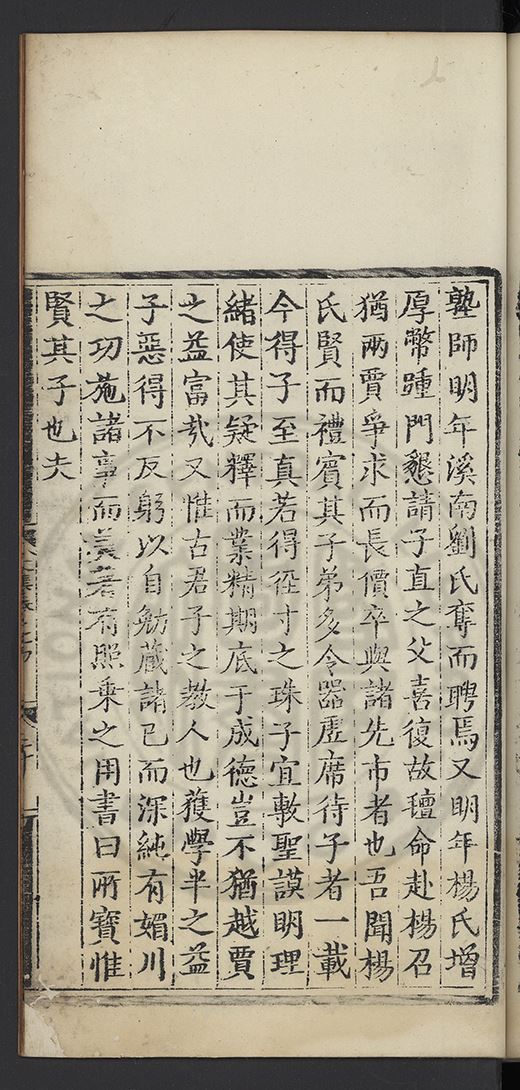 塾師明年溪南劉氏奪而聘焉又明年楊氏增
厚幣踵門懇請子直之父喜復故氊命赴楊召
猶兩賈爭求而長價卒與諸先市者也吾聞楊
氏賢而禮賓其子弟多令器虛席待子者一載
今得子至真若得徑寸之珠子宜敷聖謨明理
緒使其疑釋而業精期底于成德豈不猶越賈
之益富㢤又惟古君子之教人也獲學半之益
子惡得不反躬以自勉蔵諸已而深純有媚川
之功施諸事而美著有照乗之用書曰所寳惟
賢其子也夫